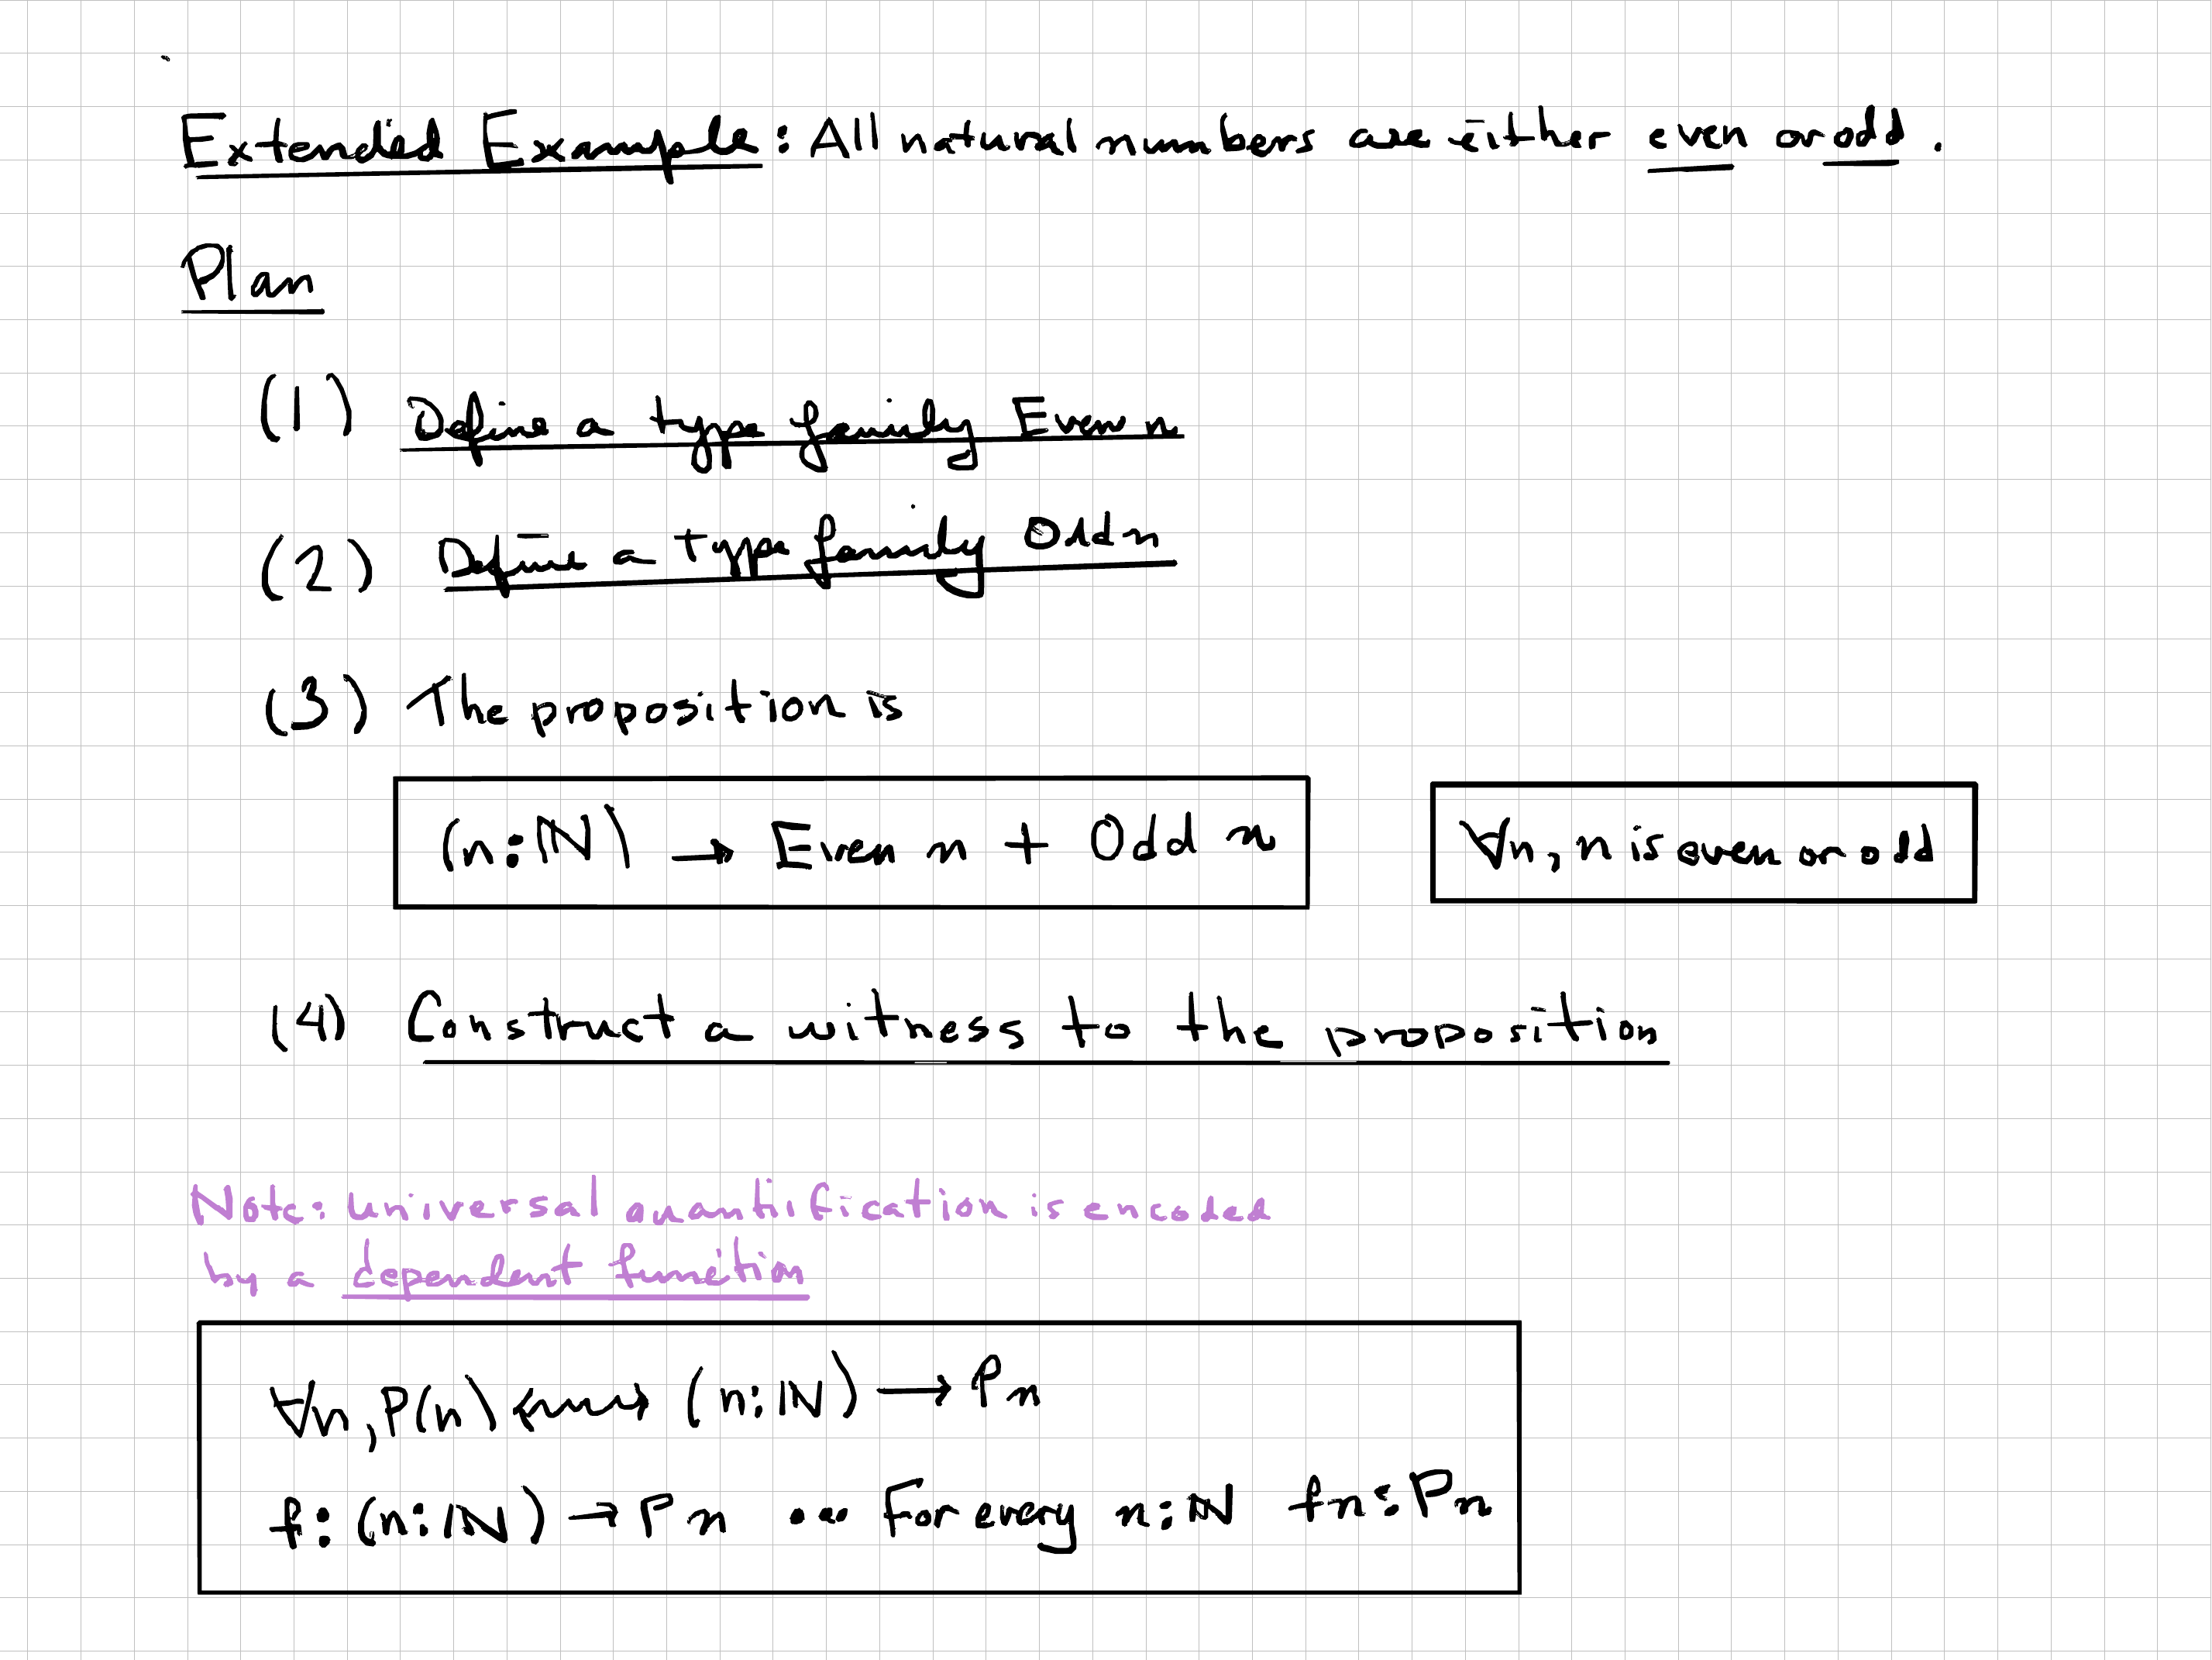 Extended Example: All natural numbers are either even or odd.
Plan
(1) Define a type family Even n
(2) Define a type family Odd n
(3) The proposition is
(n:ℕ) → Even n + Odd n
∀n, n is even or odd
(4) Construct a witness to the proposition
Note: universal quantification is encoded
by a dependent function
∀n, P(n) ↭ (n:ℕ) → P n
f: (n:ℕ) → P n ... For every n:ℕ f n : P n